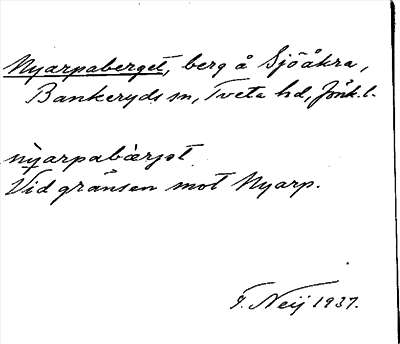 Nyarpaberget, berg å Sjöåkra,
Bankeryds sn, Tveta hd, Jönk. l.
nỳarpabàrjət
Vid gränsen mot Nyarp.
F. Neij 1937.